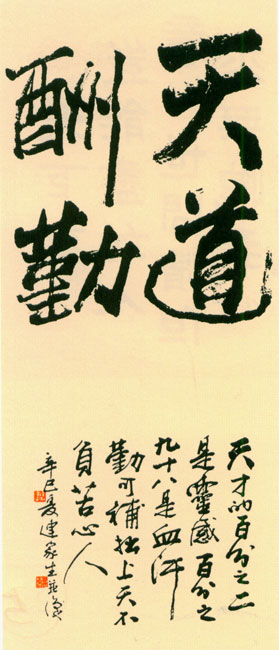 天道
酬勤
天才的百分之二
是靈感百分之
九十八是血汗
勤可補拙上天不
負苦心人
辛巳夏建家生